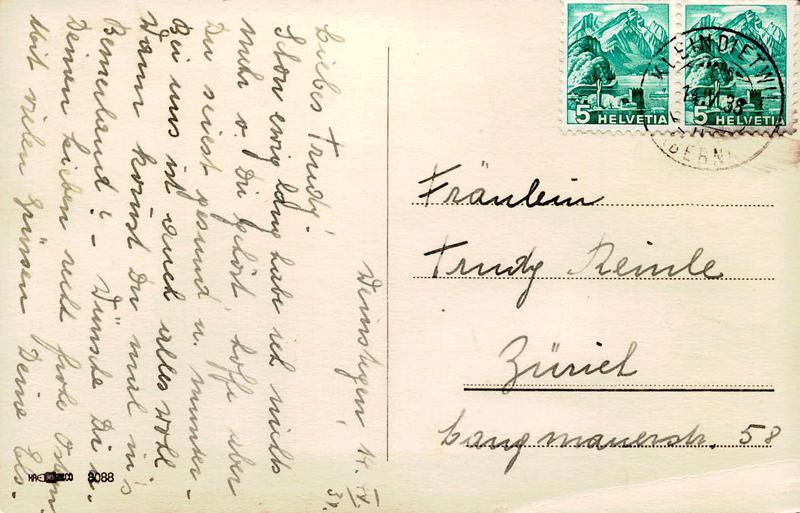 Weinstegen, 14. IV. 38.
Liebes Trudy!
Schon ewig lang hab ich nichts
mehr v. Dir gehört, hoffe aber
Du seiest gesund u. munter.
Bei uns ist auch alles wohl
Wann kommst Du mal in's
Bernerland? – Wünsche Dir u.
Deinen Lieben recht frohe Ostern
Mit vielen Grüssen Deine Els.
5 HELVETIA
5 HELVETIA
KLEINDIETWIL
14.IV.38
(BERN)
Fräulein
Trudy Reinle
Zürich
Langmauerstr. 58
8088